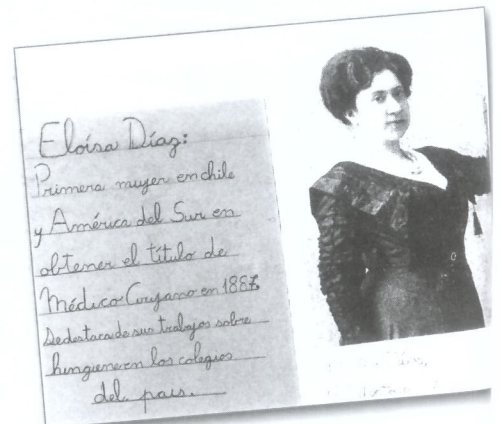 Eloísa Díaz:
Primera mujer en chile
y América del Sur en
obtener el título de
Médico Cirujano en 1887
Se destaca de sus trabajos sobre
hungiene en los colegios
del país.